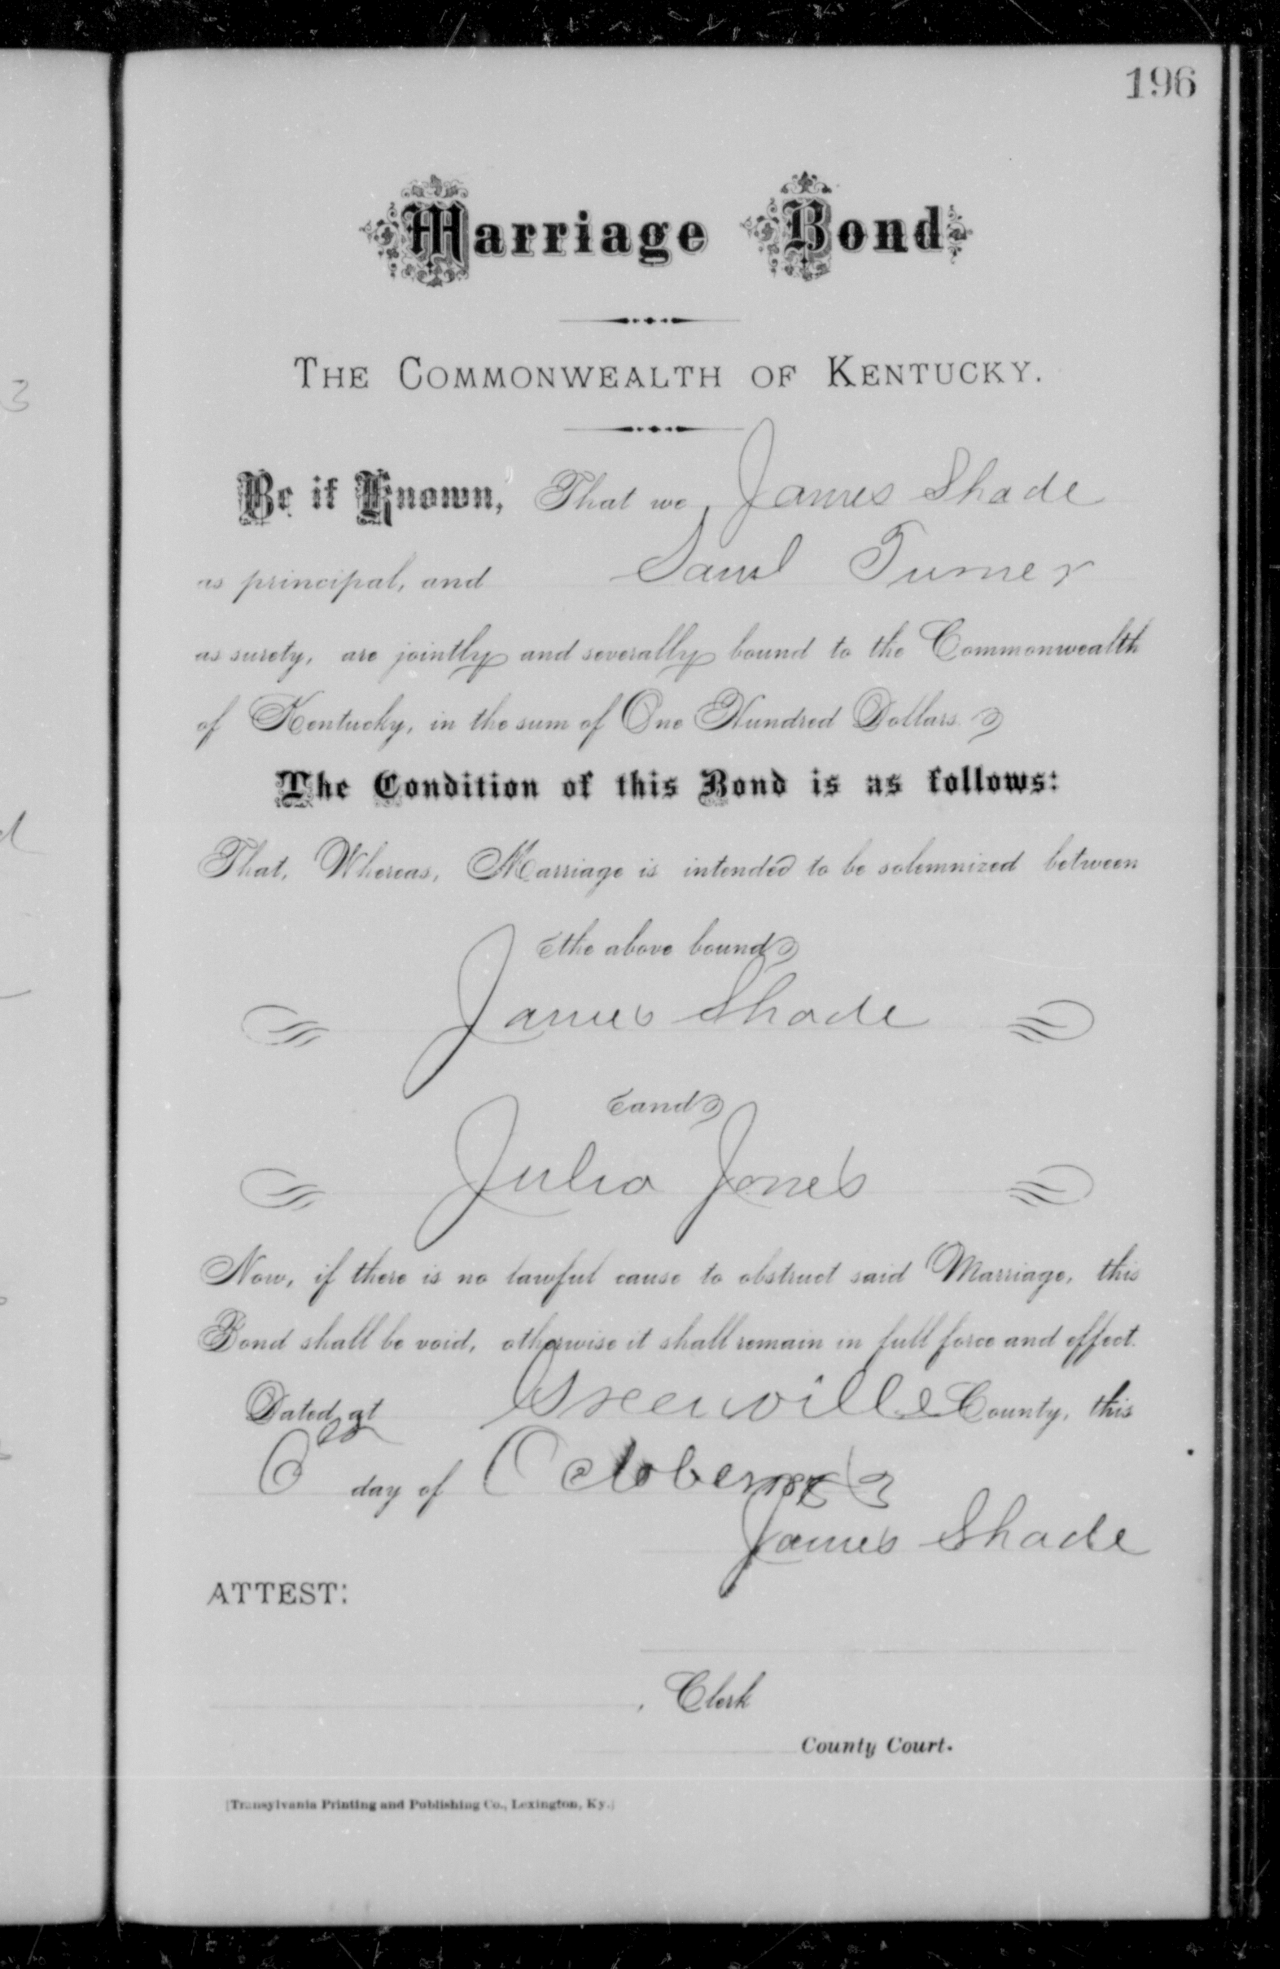 196
Marriage Bond
THE COMMONWEALTH OF KENTUCKY.
Be it Known, That we, James Shade
as principal, and Saml Turner
as surety, are jointly and severally bound to the Commonwealth
of Kentucky, in the sum of One Hundred Dollars.
The Condition of this Bond is as follows:
That, Whereas, Marriage is intended to be solemnized between
the above bound
James Shade
and
Julia Jones
Now, if there is no lawful cause to obstruct said Marriage, this
Bond shall be void, otherwise it shall remain in full force and effect.
Dated at Greenville County, this
6 day of October 188 3
James Shade
ATTEST:
, Clerk
County Court.
[Transylvania Printing and Publishing Co., Lexington, Ky.]